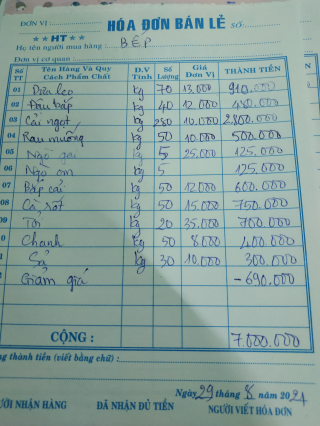 ĐƠN VỊ
HÓA ĐƠN BÁN LẺ SỐ:
★★ HT ★★
Họ tên người mua hàng: BẾP
Đơn vị cơ quan:
Số TT Tên Hàng Và Quy Cách Phẩm Chất Đ.V Tính Số Lượng Giá Đơn Vị THÀNH TIỀN
01 Dưa leo kg 70 13.000 910.000
02 Đậu bắp kg 40 12.000 480.000
03 Cải ngọt kg 280 10.000 2.800.000
04 Rau muống kg 50 10.000 500.000
05 Ngò gai kg 5 25.000 125.000
06 Ngò om kg 5 125.000
07 Bắp cải kg 50 12.000 600.000
08 Cà rốt kg 50 15.000 750.000
09 Tỏi kg 20 35.000 700.000
0 Chanh kg 50 8.000 400.000
Sả kg 30 10.000 300.000
Giảm giá -690.000
CỘNG: 7.000.000
ng thành tiền (viết bằng chữ):
Ngày 29 tháng 8 năm 2021
ƯỜI NHẬN HÀNG ĐÃ NHẬN ĐỦ TIỀN NGƯỜI VIẾT HÓA ĐƠN